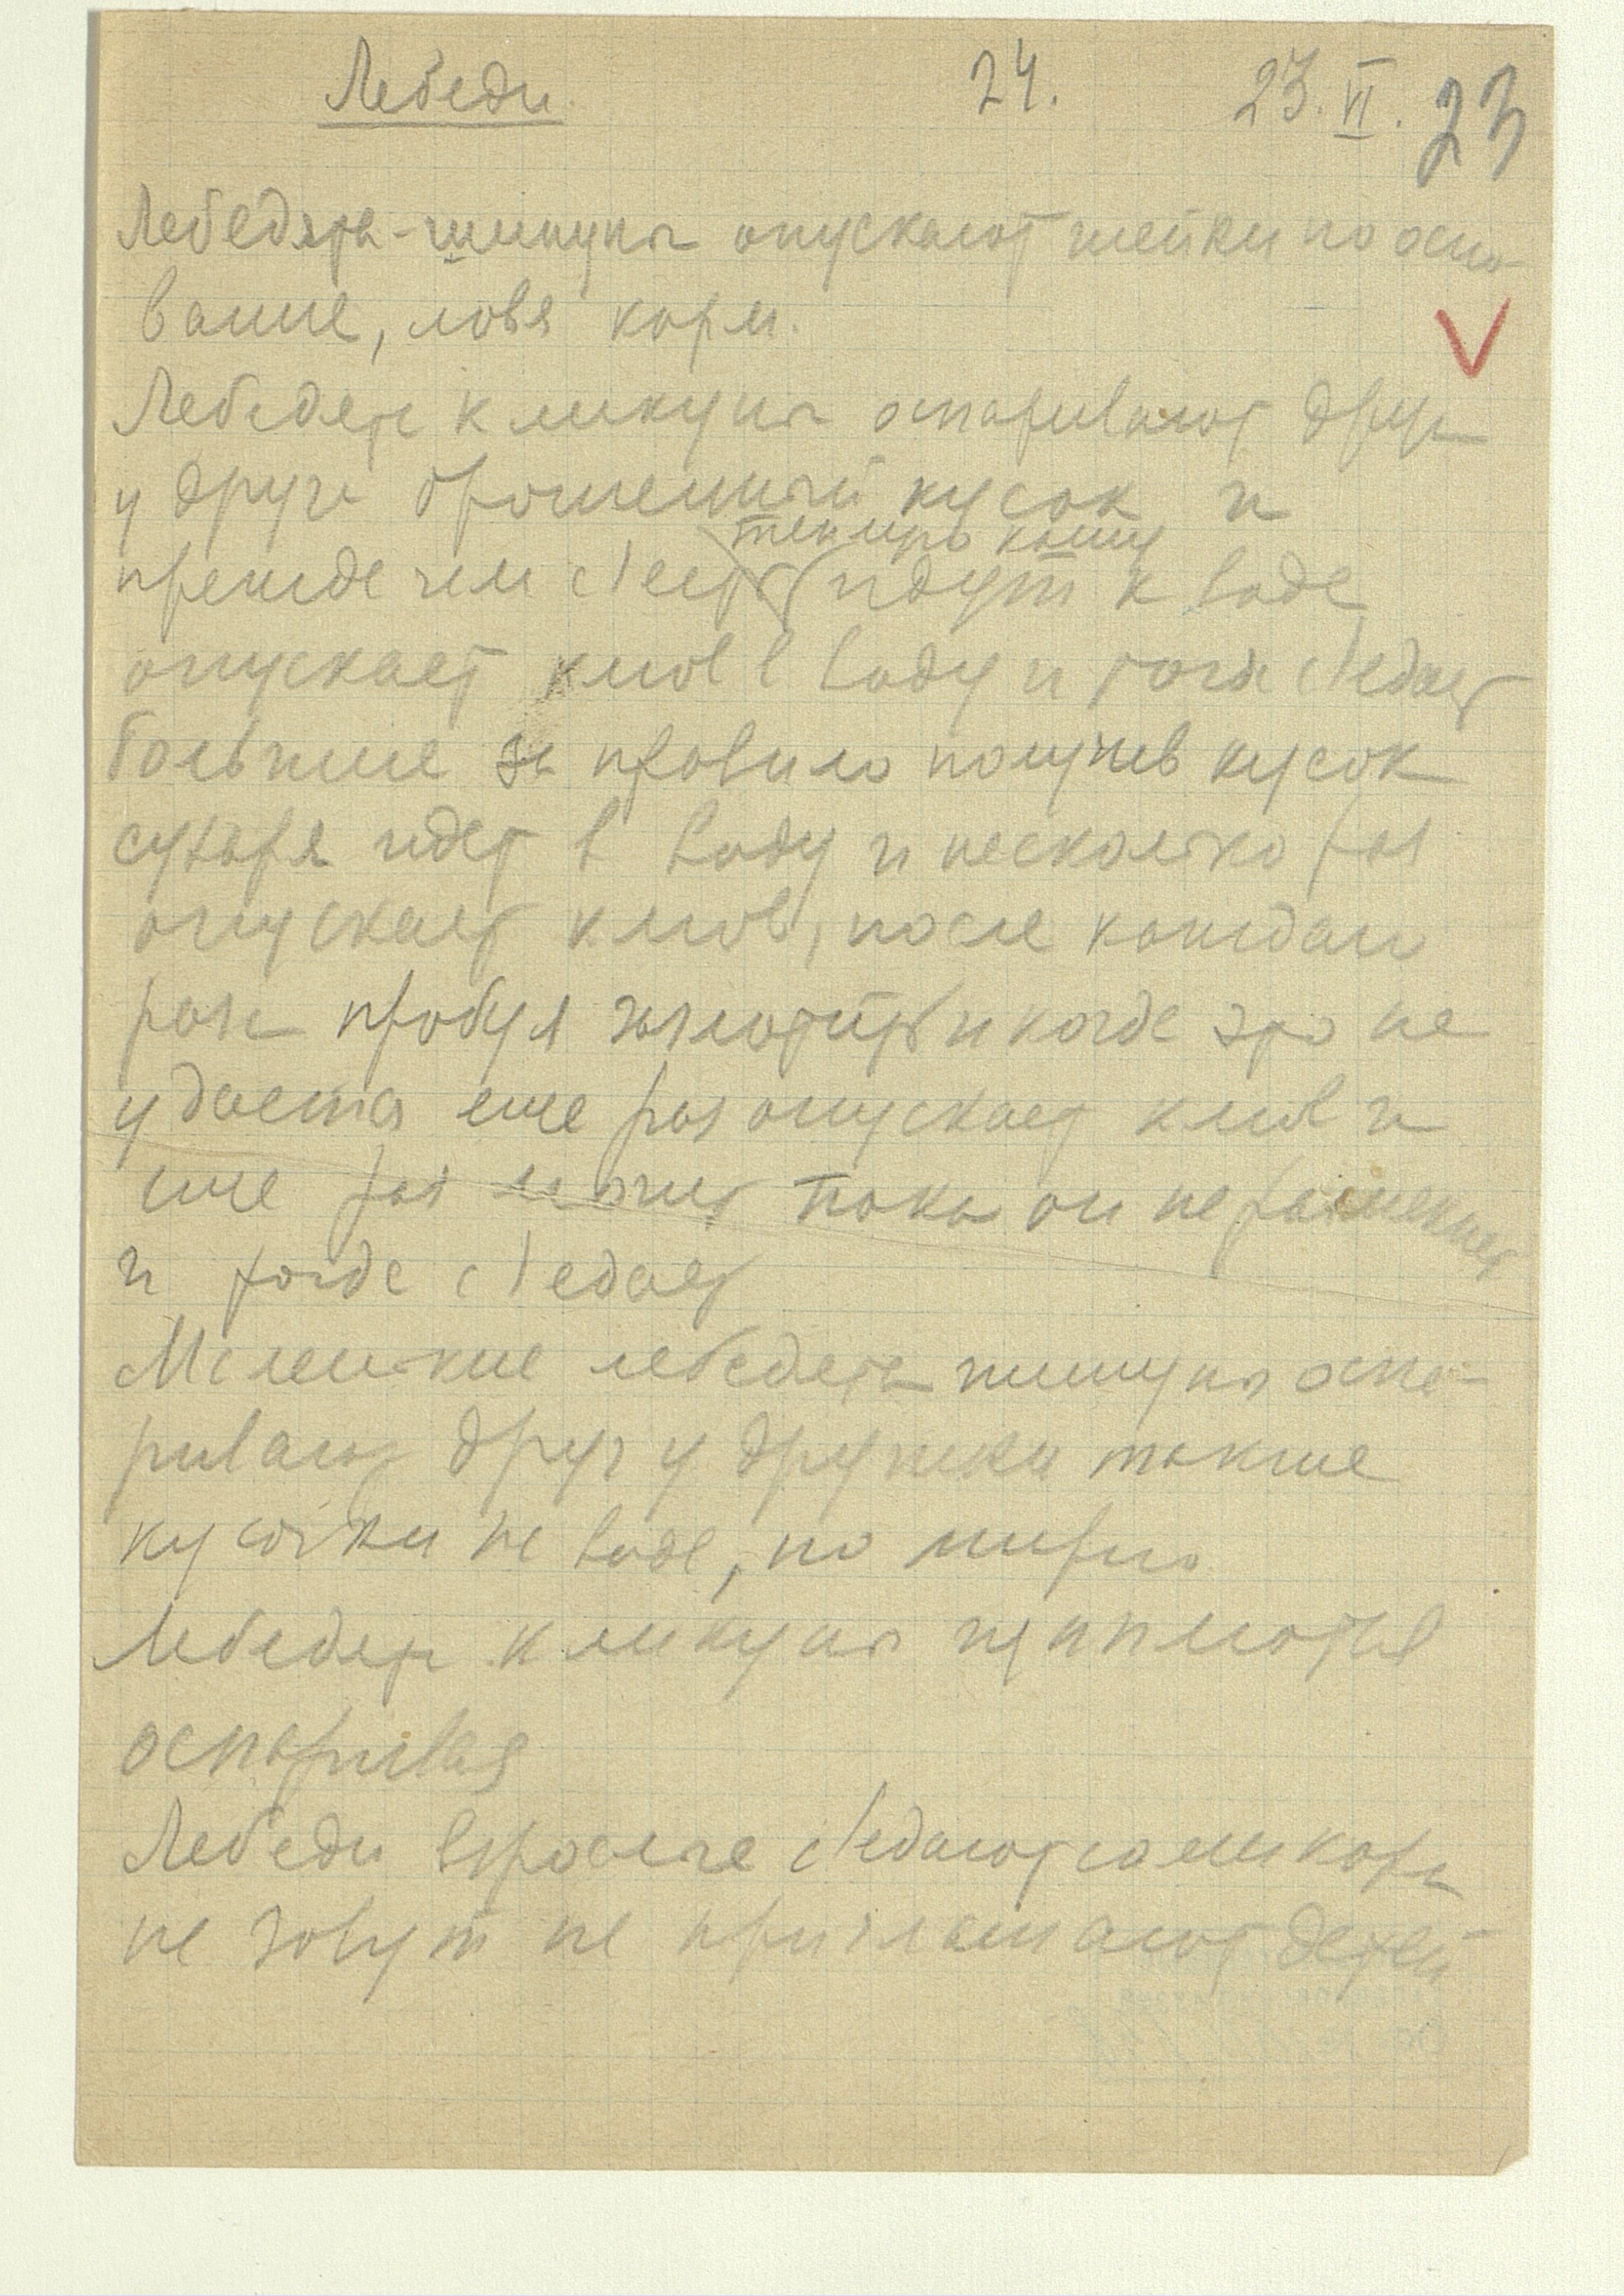 Лебеди. 24. 23. VI. 23
Лебедята-шипуны опускают шейки по осно-
вание, ловя корм.
Лебедята кликуны оспаривают друг
у друга брошенный кусок и
теперь кашу
прежде чем съесть идут к воде
опускает клюв в воду и тогда съедает
больные за правило получив кусок
сухаря идет в воду и несколько раз
опускает клюв, после каждого
раза пробуя заглотить и когда это не
удается еще раз опускает клюв и
еще раз мочит пока он не размякнет
и тогда съедает
Маленькие лебедята шипуны оспа-
ривают друг у дружки также
кусочки на воде, но мирно
Лебедята кликуны щиплются
оспаривая
Лебеди взрослые съедают сами корм
не зовут не приглашают детей